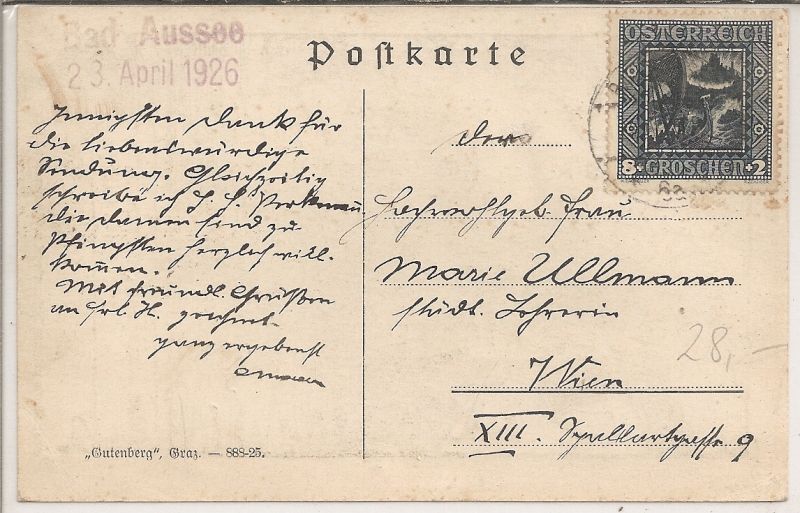 Bad Aussee
23. April 1926
Postkarte
ÖSTERREICH
8+GROSCHEN+2
Innigsten Dank für
die liebenswürdige
Sendung. Gleichzeitig
schreibe ich
die Damen sind zu
Pfingsten herzlich will-
kommen.
Mit freundl. Grüßen
an Frl. H. zeichnet
ganz ergebenst
Hochwohlgeb. Frau
Marie Ullmann
städt. Lehrerin
Wien
XIII. Spallartgasse 9
28,-
„Gutenberg", Graz. — 888-25.